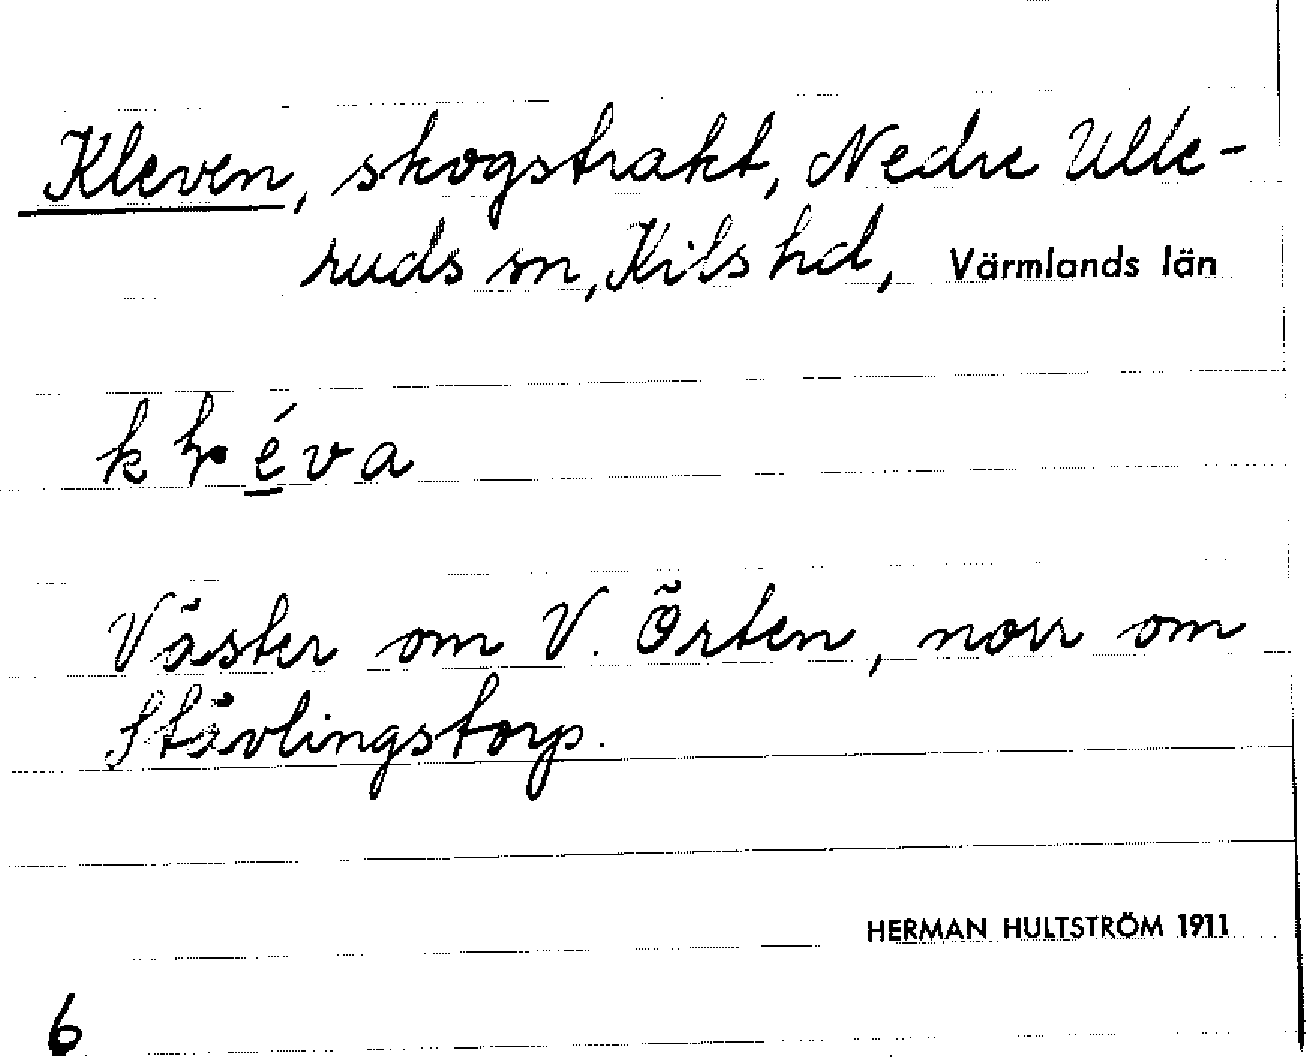 Kleven, skogstrakt, Nedre Ulle-
ruds sn, Kils hd, Värmlands län
éva
Väster om V. Örten, norr om
Stävlingstorp.
HERMAN HULTSTRÖM 1911
6